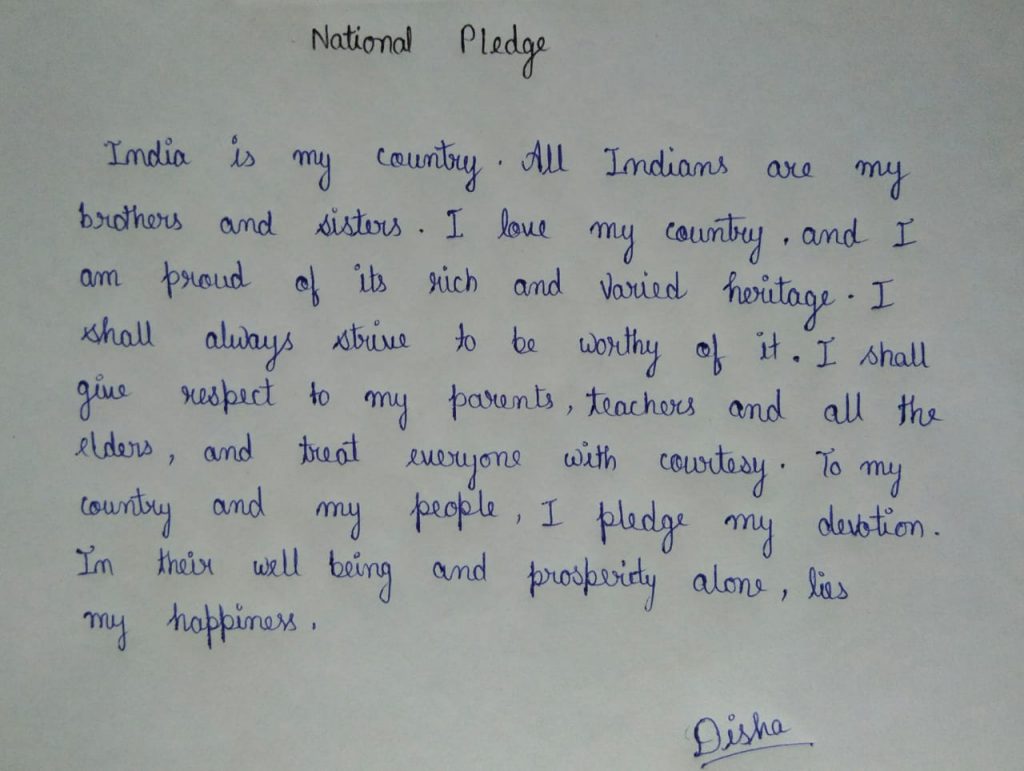 National Pledge
India is my country. All Indians are my
brothers and sisters. I love my country, and I
am proud of its rich and varied heritage. I
shall always strive to be worthy of it. I shall
give respect to my parents, teachers and all the
elders, and treat everyone with courtesy. To my
country and my people, I pledge my devotion.
In their well being and prosperity alone, lies
my happiness.
Disha